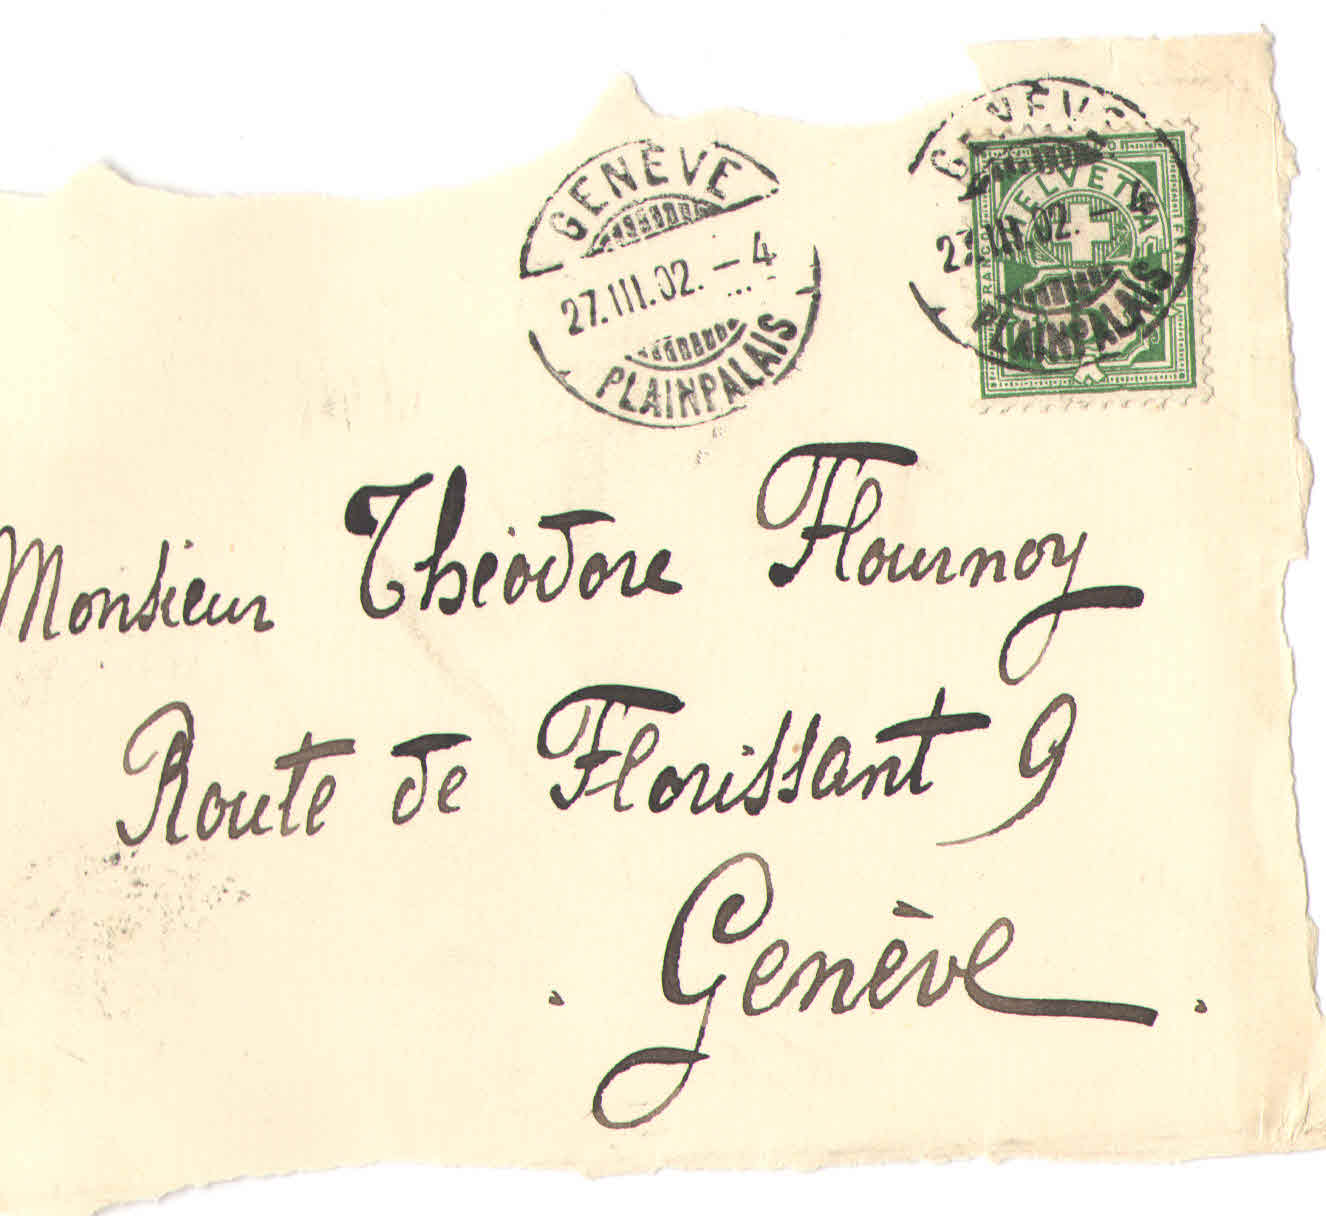 GENÈVE
27.III.02. – 4
PLAINPALAIS
GENÈVE
27.III.02. –
PLAINPALAIS
HELVETIA
FRANCO
Monsieur Théodore Flournoy
Route de Florissant 9
Genève